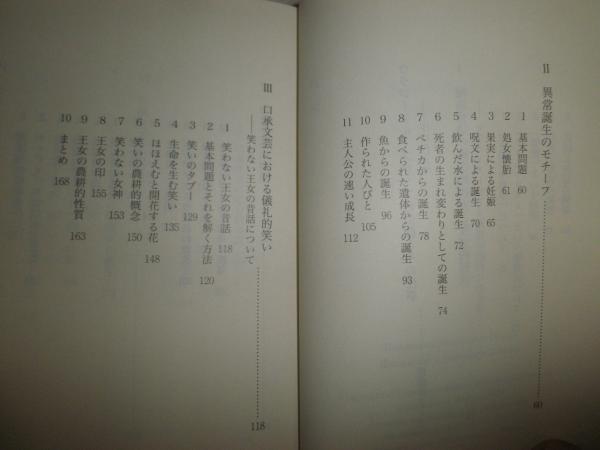 II 異常誕生のモチーフ……………………60
1 基本問題 60
2 処女懐胎 61
3 果実による妊娠 65
4 呪文による誕生 70
5 飲んだ水による誕生 72
6 死者の生まれ変わりとしての誕生 74
7 ペチカからの誕生 78
8 食べられた遺体からの誕生 93
9 魚からの誕生 96
10 作られた人びと 105
11 主人公の速い成長 112
III 口承文芸における儀礼的笑い
——笑わない王女の昔話について……………………118
1 笑わない王女の昔話 118
2 基本問題とそれを解く方法 120
3 笑いのタブー 129
4 生命を生む笑い 135
5 ほほえむと開花する花 148
6 笑いの農耕的概念 150
7 笑わない女神 153
8 王女の印 155
9 王女の農耕的性質 163
10 まとめ 168